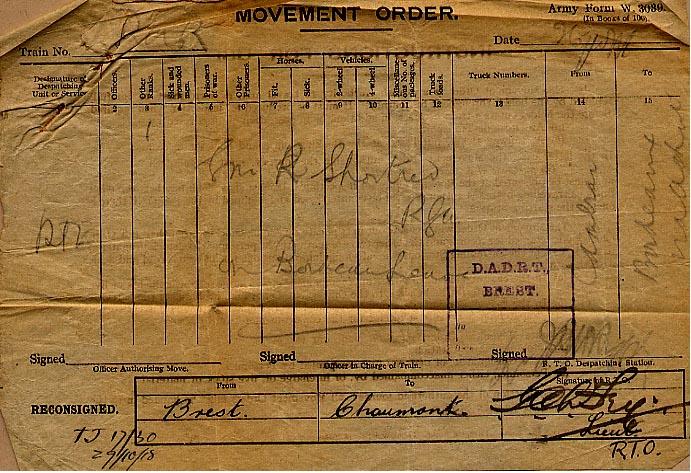 MOVEMENT ORDER.
Army Form W. 3089.
(In Books of 100).
Train No.
Date
Designature of Despatching Unit or Service
Officers.
Other Ranks.
Sick and wounded men.
Prisoners of war.
Other Prisoners.
Horses.
Fit.
Sick.
Vehicles.
2-wheel
4-wheel
Miscellaneous No. of packages.
Truck loads.
Truck Numbers.
From
To
2 3 4 5 6 7 8 9 10 11 12 13 14 15
1
R Shortred
RTO
on
D.A.D.R.T.
BREST.
Bordeaux
Signed
Officer Authorising Move.
Signed
Officer in Charge of Train.
Signed
R. T. O. Despatching Station.
RECONSIGNED.
From
To
Signature of R.
Brest.
Chaumont
Lieut.
R.T.O.
TJ 17/30
29/10/18